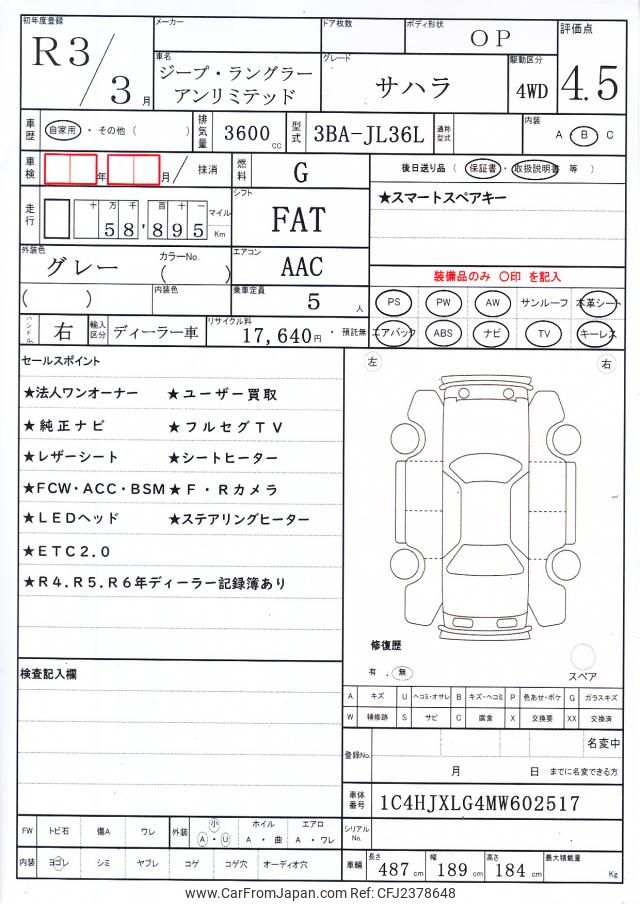 初年度登録 メーカー ドア枚数 ボディ形状 評価点
R3/3月 OP 4.5
車名 グレード 駆動区分
ジープ・ラングラー
アンリミテッド サハラ 4WD
車歴 自家用 ・ その他 ( ) 排気量 3600cc 型式 3BA-JL36L 通称型式 内装 A ・ B ・ C
車検 年 月 / 抹消 燃料 G 後日送り品 ( 保証書 ・ 取扱説明書 等 )
走行 十 万 千 百 十 一 マイル Km シフト ★スマートスペアキー
58,895 FAT
外装色 カラーNo. エアコン
グレー ( ) AAC 装備品のみ 〇印 を記入
( ) 内装色 乗車定員 5人 PS PW AW サンルーフ 本革シート
ハンドル 右 輸入区分 ディーラー車 リサイクル料 17,640円 ・ 預託無 エアバック ABS ナビ TV キーレス
セールスポイント 左 右
★法人ワンオーナー ★ユーザー買取
★純正ナビ ★フルセグTV
★レザーシート ★シートヒーター
★FCW・ACC・BSM★F・Rカメラ
★LEDヘッド ★ステアリングヒーター
★ETC2.0
★R4.R5.R6年ディーラー記録簿あり
修復歴
有 ・ 無 スペア
検査記入欄
A キズ U ヘコミ・オサレ B キズ・ヘコミ P 色あせ・ボケ G ガラスキズ
W 補修跡 S サビ C 腐食 X 交換要 XX 交換済
登録No. 名変中
月 日 までに名変できる方
車体番号 1C4HJXLG4MW602517
シリアルNo.
FW トビ石 傷A ワレ 外装 小 A ・ U ホイル A ・ 曲 エアロ A ・ ワレ
内装 ヨゴレ シミ ヤブレ コゲ コゲ穴 オーディオ穴 車輛 長さ 487cm 幅 189cm 高さ 184cm 最大積載量 Kg
www.CarFromJapan.com Ref: CFJ2378648